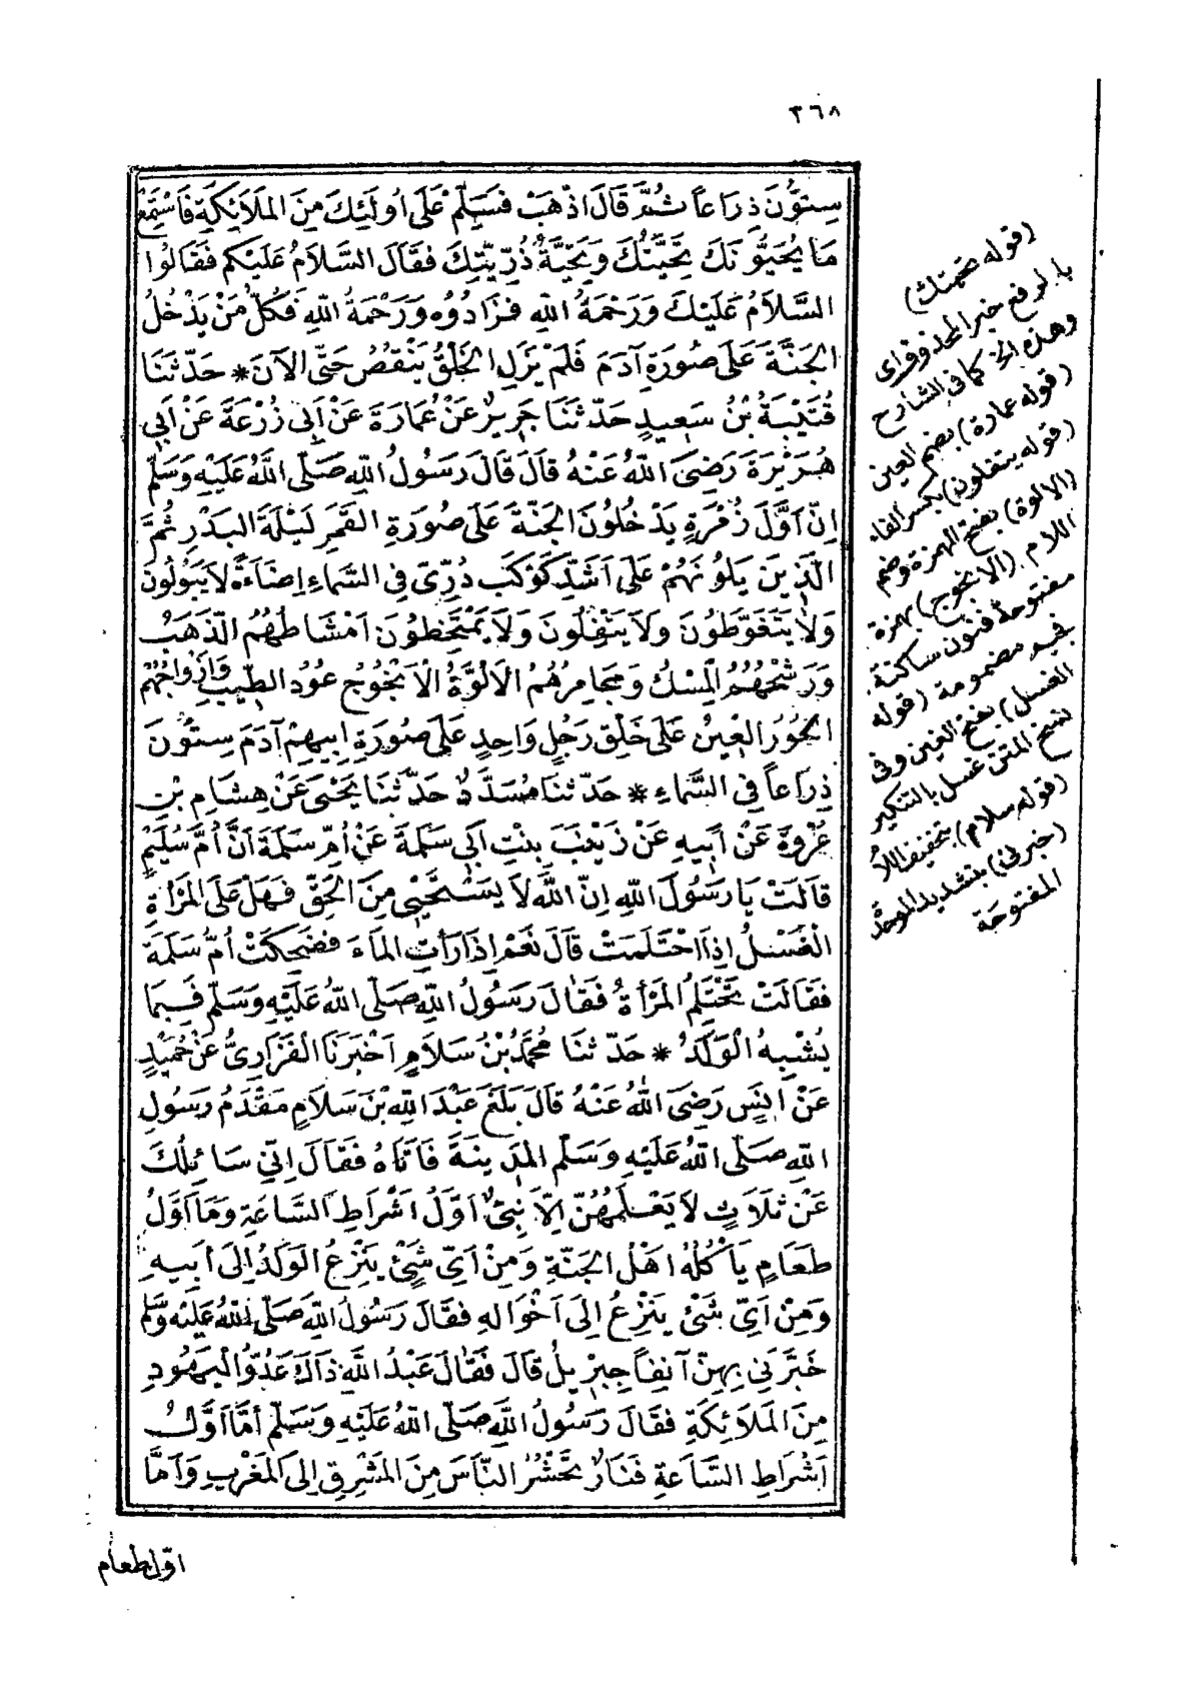 ٣٦٨
سِتُّونَ ذِرَاعاً ثُمَّ قَالَ اذْهَبْ فَسَلِّمْ عَلَى أُولَئِكَ مِنَ المَلَائِكَةِ فَاسْتَمِعْ
مَا يُحَيُّونَكَ تَحِيَّتُكَ وَتَحِيَّةُ ذُرِّيَّتِكَ فَقَالَ السَّلَامُ عَلَيْكُم فَقَالُوا
السَّلَامُ عَلَيْكَ وَرَحْمَةُ اللهِ فَزَادُوهُ وَرَحْمَةُ اللهِ فَكُلُّ مَنْ يَدْخُلُ
الجَنَّةَ عَلَى صُورَةِ آدَمَ فَلَمْ يَزَلِ الخَلْقُ يَنْقُصُ حَتَّى الْآنَ * حَدَّثَنَا
قُتَيْبَةُ بْنُ سَعِيدٍ حَدَّثَنَا جَرِيرٌ عَنْ عُمَارَةَ عَنْ أَبِي زُرْعَةَ عَنْ أَبِي
هُرَيْرَةَ رَضِيَ اللهُ عَنْهُ قَالَ قَالَ رَسُولُ اللهِ صَلَّى اللهُ عَلَيْهِ وَسَلَّمَ
إِنَّ أَوَّلَ زُمْرَةٍ يَدْخُلُونَ الجَنَّةَ عَلَى صُورَةِ القَمَرِ لَيْلَةَ البَدْرِ ثُمَّ
الَّذِينَ يَلُونَهُمْ عَلَى أَشَدِّ كَوْكَبٍ دُرِّيٍّ فِي السَّمَاءِ إِضَاءَةً لَا يَبُولُونَ
وَلَا يَتَغَوَّطُونَ وَلَا يَتْفِلُونَ وَلَا يَمْتَخِطُونَ أَمْشَاطُهُمُ الذَّهَبُ
وَرَشْحُهُمُ الْمِسْكُ وَمَجَامِرُهُمُ الْأَلُوَّةُ الْأَنْجُوجُ عُودُ الطِّيبِ وَأَزْوَاجُهُمُ
الحُورُ الْعِينُ عَلَى خَلْقِ رَجُلٍ وَاحِدٍ عَلَى صُورَةِ أَبِيهِمْ آدَمَ سِتُّونَ
ذِرَاعاً فِي السَّمَاءِ * حَدَّثَنَا مُسَدَّدٌ حَدَّثَنَا يَحْيَى عَنْ هِشَامِ بْنِ
عُرْوَةَ عَنْ أَبِيهِ عَنْ زَيْنَبَ بِنْتِ أَبِي سَلَمَةَ عَنْ أُمِّ سَلَمَةَ أَنَّ أُمَّ سُلَيْمٍ
قَالَتْ يَا رَسُولَ اللهِ إِنَّ اللَّهَ لَا يَسْتَحْيِي مِنَ الحَقِّ فَهَلْ عَلَى المَرْأَةِ
الْغَسْلُ إِذَا احْتَلَمَتْ قَالَ نَعَمْ إِذَا رَأَتِ المَاءَ فَضَحِكَتْ أُمُّ سَلَمَةَ
فَقَالَتْ تَحْتَلِمُ المَرْأَةُ فَقَالَ رَسُولُ اللهِ صَلَّى اللهُ عَلَيْهِ وَسَلَّمَ فَبِمَا
يُشْبِهُ الْوَلَدُ * حَدَّثَنَا مُحَمَّدُ بْنُ سَلَامٍ أَخْبَرَنَا الْفَزَارِيُّ عَنْ حُمَيْدٍ
عَنْ أَنَسٍ رَضِيَ اللهُ عَنْهُ قَالَ بَلَغَ عَبْدَ اللهِ بْنَ سَلَامٍ مَقْدَمُ رَسُولِ
اللهِ صَلَّى اللهُ عَلَيْهِ وَسَلَّمَ المَدِينَةَ فَأَتَاهُ فَقَالَ إِنِّي سَائِلُكَ
عَنْ ثَلَاثٍ لَا يَعْلَمُهُنَّ إِلَّا نَبِيٌّ أَوَّلُ أَشْرَاطِ السَّاعَةِ وَمَا أَوَّلُ
طَعَامٍ يَأْكُلُهُ أَهْلُ الجَنَّةِ وَمِنْ أَيِّ شَيْءٍ يَنْزِعُ الوَلَدُ إِلَى أَبِيهِ
وَمِنْ أَيِّ شَيْءٍ يَنْزِعُ إِلَى أَخْوَالِهِ فَقَالَ رَسُولُ اللهِ صَلَّى اللهُ عَلَيْهِ وَسَلَّمَ
خَبَّرَنِي بِهِنَّ آنِفاً جِبْرِيلُ قَالَ فَقَالَ عَبْدُ اللهِ ذَاكَ عَدُوُّ الْيَهُودِ
مِنَ المَلَائِكَةِ فَقَالَ رَسُولُ اللهِ صَلَّى اللهُ عَلَيْهِ وَسَلَّمَ أَمَّا أَوَّلُ
أَشْرَاطِ السَّاعَةِ فَنَارٌ تَحْشُرُ النَّاسَ مِنَ المَشْرِقِ إِلَى المَغْرِبِ وَأَمَّا
اوّل طعام
(قوله تحيتك)
بالرفع خبر المحذوف اى
وهذه الخ كما فى الشارح
(قوله عمارة) بضم العين
(قوله يتفلون) بكسر الفاء
(الالوة) بفتح الهمزة وضم
اللام (الانجوج) بهمزة
مفتوحة فنون ساكنة
فجيم مضمومة (قوله
الغسل) بفتح الغين وفى
نسخ المتن غسل بالتنكير
(قوله سلام) بتخفيف اللا
(خبرنى) بتشديد الموحدة
المفتوحة